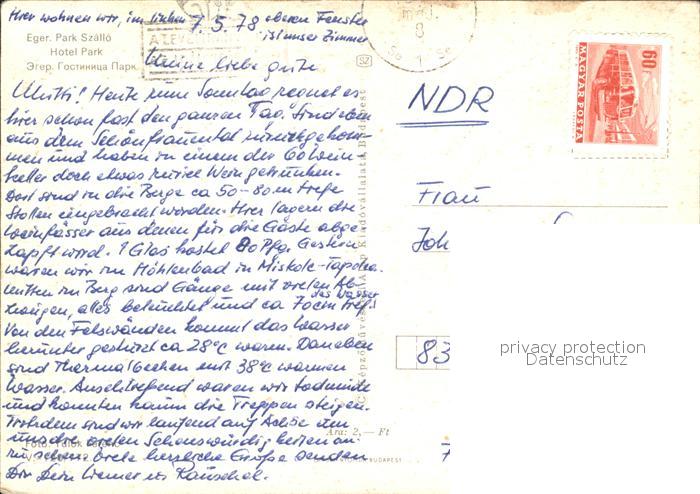 Hier wohnen wir, im linken oberen Fenster
7.5.78
ist unser Zimmer
Eger. Park Szálló
Hotel Park
Эгер. Гостиница Парк
Meine liebe gute
Mutti! Heute zum Sonntag regnet es
hier schon fast den ganzen Tag. Sind eben
aus dem Schönfrauental zurückgekom-
men und haben in einem der 60 Wein
keller doch etwas zuviel Wein getrunken.
Dort sind in die Berge ca 50-80 m tiefe
Stollen eingebracht worden. Hier lagern die
Weinfässer aus denen für die Gäste abge
zapft wird. 1 Glas kostet 80 Pfg. Gestern
waren wir im Höhlenbad in Miskolc-Tapolca.
Mitten im Berg sind Gänge mit vielen Ab
zweigungen, alles beleuchtet und das Wasser ca 70 cm tief.
Von den Felswänden kommt das Wasser
herunter gestürzt ca 28°C warm. Daneben
sind Thermalbecken mit 38°C warmen
Wasser. Anschließend waren wir todmüde
und konnten kaum die Treppen steigen.
Trotzdem sind wir laufend auf Achse um
uns die vielen Sehenswürdigkeiten an-
zusehen. Viele herzliche Grüße senden
Dir Dein Werner u.
NDR
Frau
Joh
83
60f
MAGYAR POSTA
SZ
Képzőművészeti Alap Kiadóvállalata, Budapest
Ára: 2,— Ft
BUDAPEST
privacy protection
Datenschutz